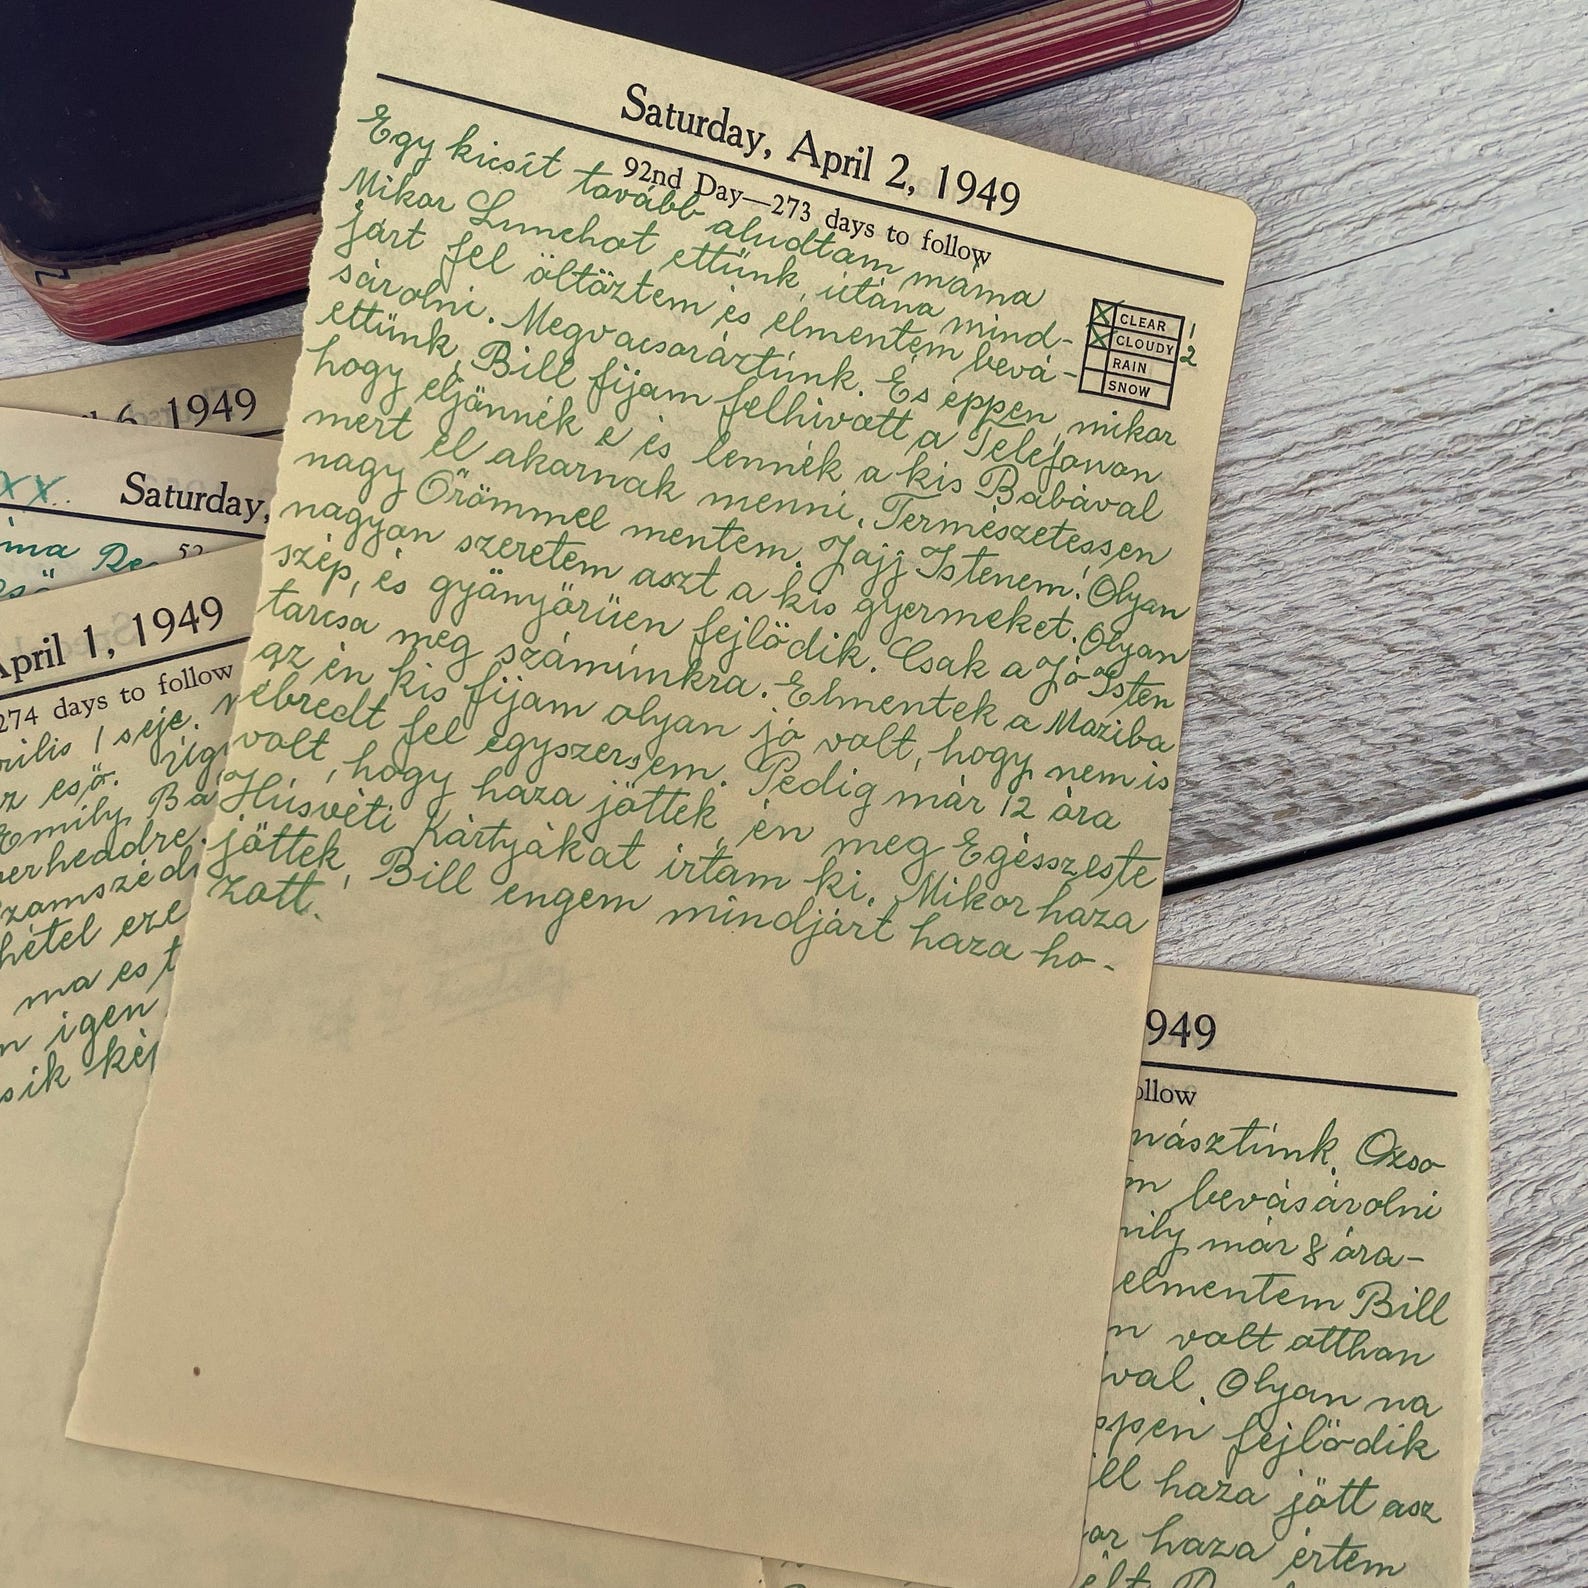 Saturday, April 2, 1949
92nd Day—273 days to follow
Egy kicsit tovább aludtam máma
Mikor Lunchot ettünk, utána mind-
járt fel öltöztem és elmentem bevá-
sárolni. Megvacsoráztunk. És éppen, mikor
ettünk, Bill fijam felhivott a Telefonon
hogy eljönnék e és lennék a kis Babával
mert el akarnak menni. Természetessen
nagy Örömmel mentem. Jajj Istenem! Olyan
nagyon szeretem aszt a kis gyermeket. Olyan
szép, és gyönyörüen fejlödik. Csak a Jó Isten
tarcsa meg számúnkra. Elmentek a Moziba
az én kis fijam olyan jó volt, hogy nem is
ébredt fel egyszersem. Pedig már 12 óra
volt, hogy haza jöttek, én meg Egésszeste
Húsvéti Kártyákat irtam ki. Mikor haza
jöttek, Bill engem mindjárt haza ho-
zott.
CLEAR 1
CLOUDY 2
RAIN
SNOW
6, 1949
XX. Saturday,
52
April 1, 1949
274 days to follow
1 seje.
esö.
Emily, Ba
hétel eze
ma es t
igen
949
ollow
násztunk. Ozso
m bevásárolni
mily már 8 óra-
elmentem Bill
n volt otthon
val. Olyan na
ppen fejlödik
ill haza jött asz
or haza értem